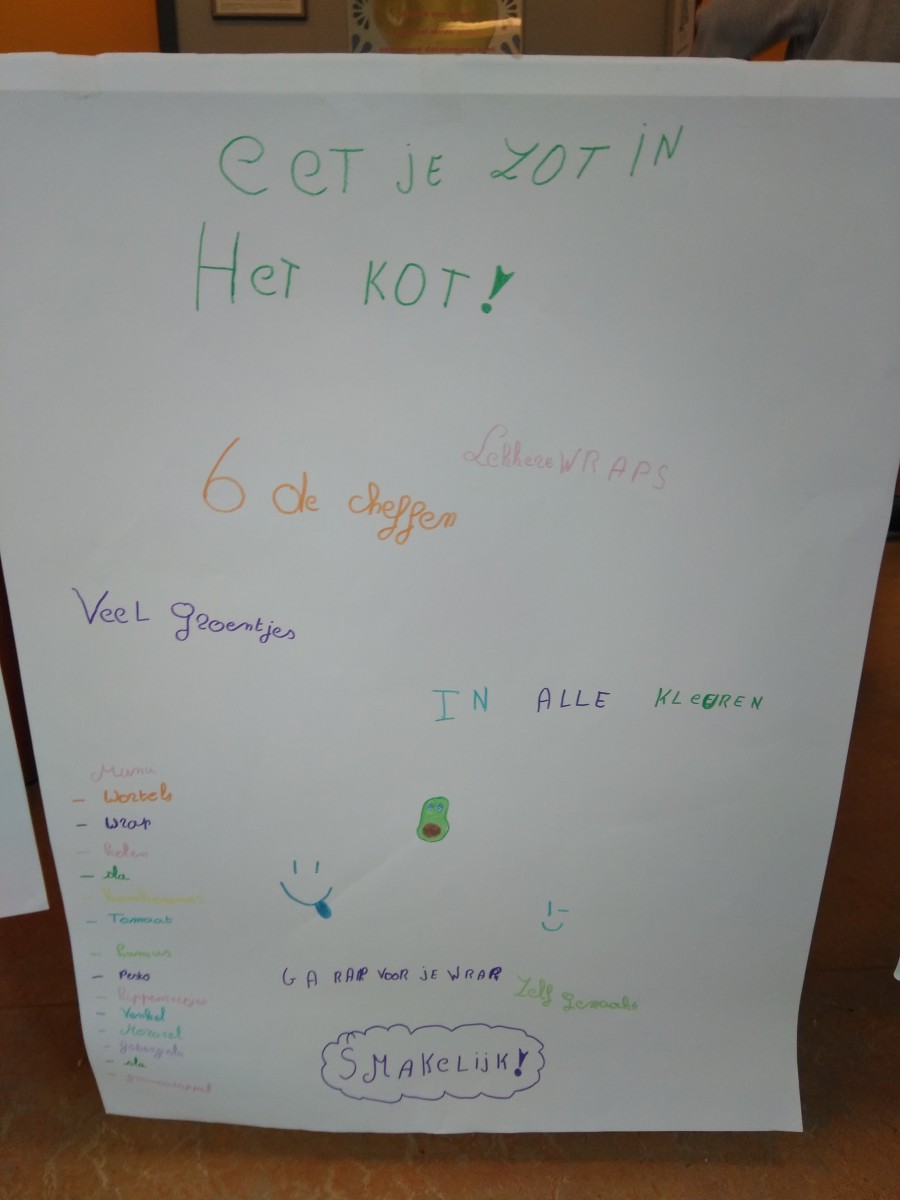 eeT jE ZOT iN
HeT KOT!
Lekkere WRAPS
6 de cheffen
VeeL groentjes
IN ALLE KLeUREN
Menu
- Wortels
- Wrap
- sla
- Tomaat
- humus
- Pesto
- Venkel
- Mozarel
- sla
GA RAP VOOR jE WRAP
Zelf gemaakt
SMAKeLijK!